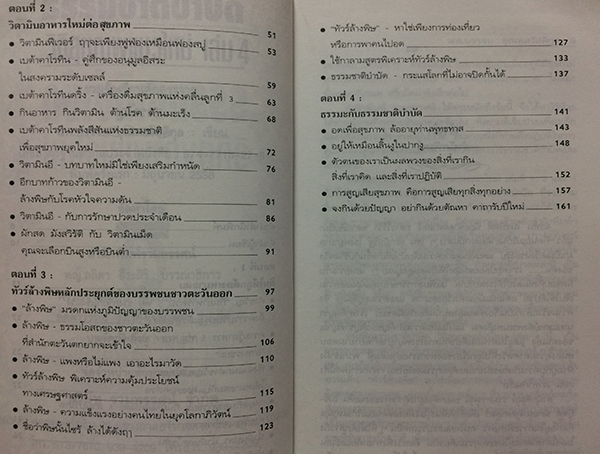 ตอนที่ 2 :
วิตามินอาหารใหม่ต่อสุขภาพ 51
● วิตามินฟีเวอร์ ฤๅจะเพียงฟูฟ่องเหมือนฟองสบู่ 53
● เบต้าคาโรทีน - คู่ศึกของอนุมูลอิสระ
ในสงครามระดับเซลล์ 59
● เบต้าคาโรทีนดริ๊ง - เครื่องดื่มสุขภาพแห่งคลื่นลูกที่ 3 63
● กินอาหาร กินวิตามิน ต้านโรค ต้านมะเร็ง 68
● เบต้าคาโรทีนพลังสีสันแห่งธรรมชาติ
เพื่อสุขภาพยุคใหม่ 72
● วิตามินอี - บทบาทใหม่มิใช่เพียงเสริมกำหนัด 76
● อีกบาทก้าวของวิตามินอี -
ล้างพิษกับโรคหัวใจความดัน 81
● วิตามินอี - กับการรักษาปวดประจำเดือน 86
● ผักสด มังสวิรัติ กับ วิตามินเม็ด
คุณจะเลือกบินสูงหรือบินต่ำ 91
ตอนที่ 3 :
ทัวร์ล้างพิษหลักประยุกต์ของบรรพชนชาวตะวันออก 97
● "ล้างพิษ" มรดกแห่งภูมิปัญญาของบรรพชน 99
● ล้างพิษ - ธรรมโอสถของชาวตะวันออก
ที่สำนักตะวันตกยากจะเข้าใจ 106
● ล้างพิษ - แพงหรือไม่แพง เอาอะไรมาวัด 110
● ทัวร์ล้างพิษ พิเคราะห์ความคุ้มประโยชน์
ทางเศรษฐศาสตร์ 115
● ล้างพิษ - ความแข็งแรงอย่างคนไทยในยุคโลกาภิวัตน์ 119
● ชื่อว่าพิษนั้นไซร้ ล้างได้ดังฤๅ 123
● "ทัวร์ล้างพิษ" - หาใช่เพียงการท่องเที่ยว
หรือการพาคนไปอด 127
● ใช้กาลามสูตรพิเคราะห์ทัวร์ล้างพิษ 133
● ธรรมชาติบำบัด - กระแสโลกที่ไม่อาจปิดกั้นได้ 137
ตอนที่ 4 :
ธรรมะกับธรรมชาติบำบัด 141
● อดเพื่อสุขภาพ ล้ออายุท่านพุทธทาส 143
● อยู่ให้เหมือนลิ้นงูในปากงู 148
● ตัวตนของเราเป็นผลพวงของสิ่งที่เรากิน
สิ่งที่เราคิด และสิ่งที่เราปฏิบัติ 152
● การสูญเสียสุขภาพ คือการสูญเสียทุกสิ่งทุกอย่าง 157
● จงกินด้วยปัญญา อย่ากินด้วยตัณหา คาถารับปีใหม่ 161